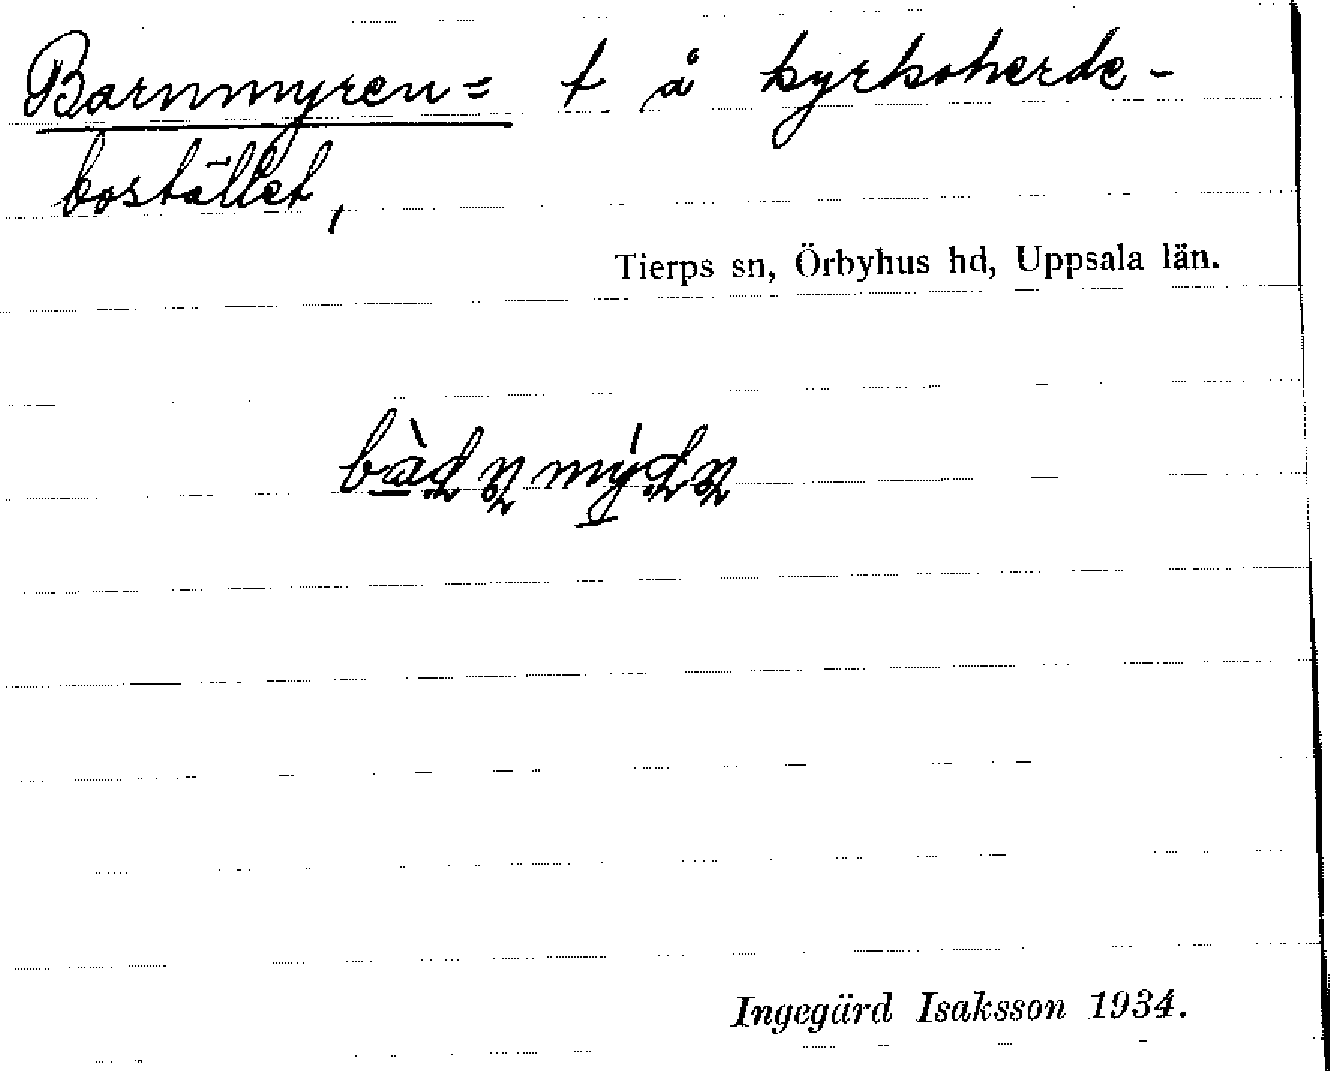 Barnmyren = t å kyrkoherde-
bostället,
Tierps sn, Örbyhus hd, Uppsala län.
Ingegärd Isaksson 1934.